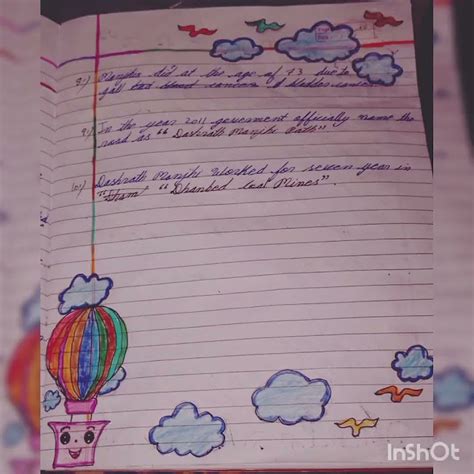 Manjhi did at the age of 73 due to
gall blad cancer.
9.) In the year 2011 goverment officially name the
road as "Dashrath Manjhi Path"
10.) Dashrath Manjhi worked for seven year in
"Dhanbad Coal Mines".
InShOt